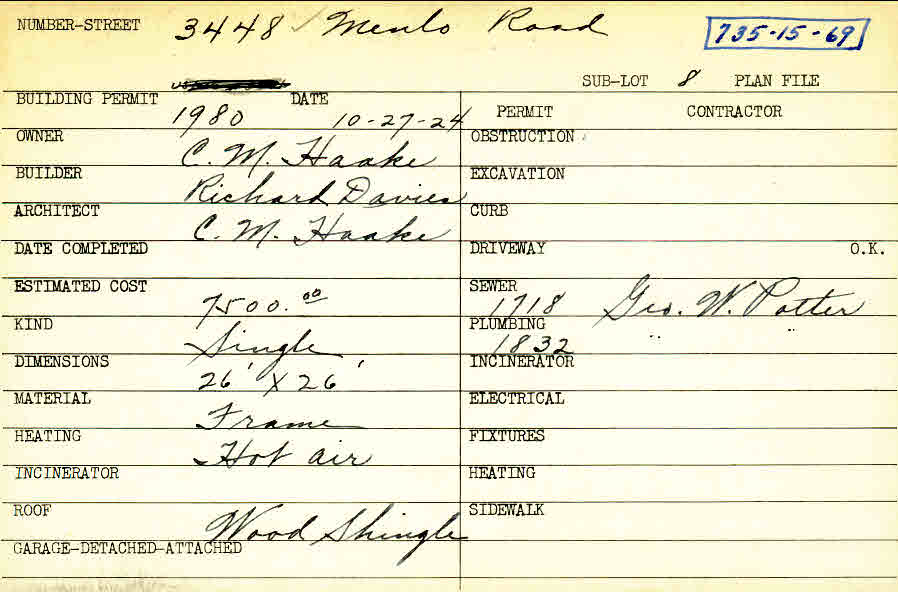 NUMBER-STREET 3448 ✓ Menlo Road 735-15-69
SUB-LOT 8 PLAN FILE
BUILDING PERMIT 1980 DATE 10-27-24
PERMIT CONTRACTOR
OWNER C. M. Haake
OBSTRUCTION
BUILDER Richard Davies
EXCAVATION
ARCHITECT C. M. Haake
CURB
DATE COMPLETED
DRIVEWAY O.K.
ESTIMATED COST 7500.00
SEWER 1718 Geo. W. Potter
KIND Single
PLUMBING 1832 " "
DIMENSIONS 26' X 26'
INCINERATOR
MATERIAL Frame
ELECTRICAL
HEATING Hot air
FIXTURES
INCINERATOR
HEATING
ROOF Wood Shingle
SIDEWALK
GARAGE-DETACHED-ATTACHED